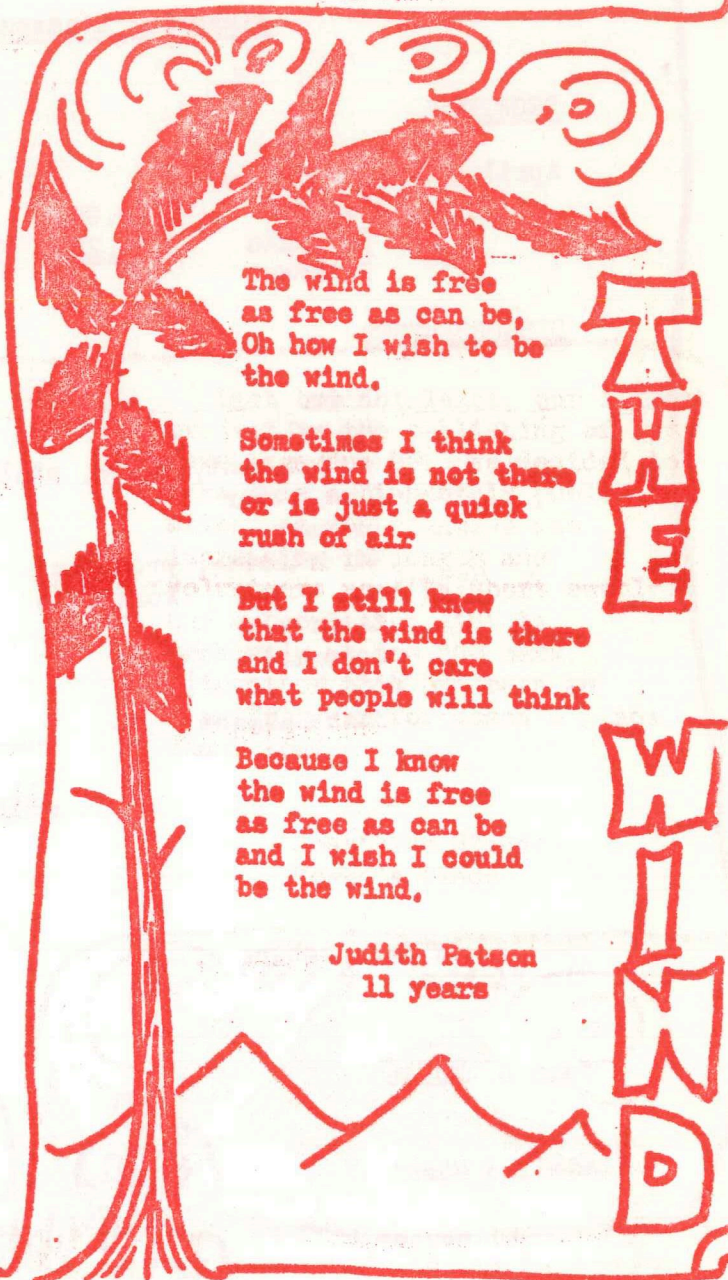 THE WIND
The wind is free
as free as can be,
Oh how I wish to be
the wind.
Sometimes I think
the wind is not there
or is just a quick
rush of air
But I still know
that the wind is there
and I don't care
what people will think
Because I know
the wind is free
as free as can be
and I wish I could
be the wind.
Judith Patson
11 years